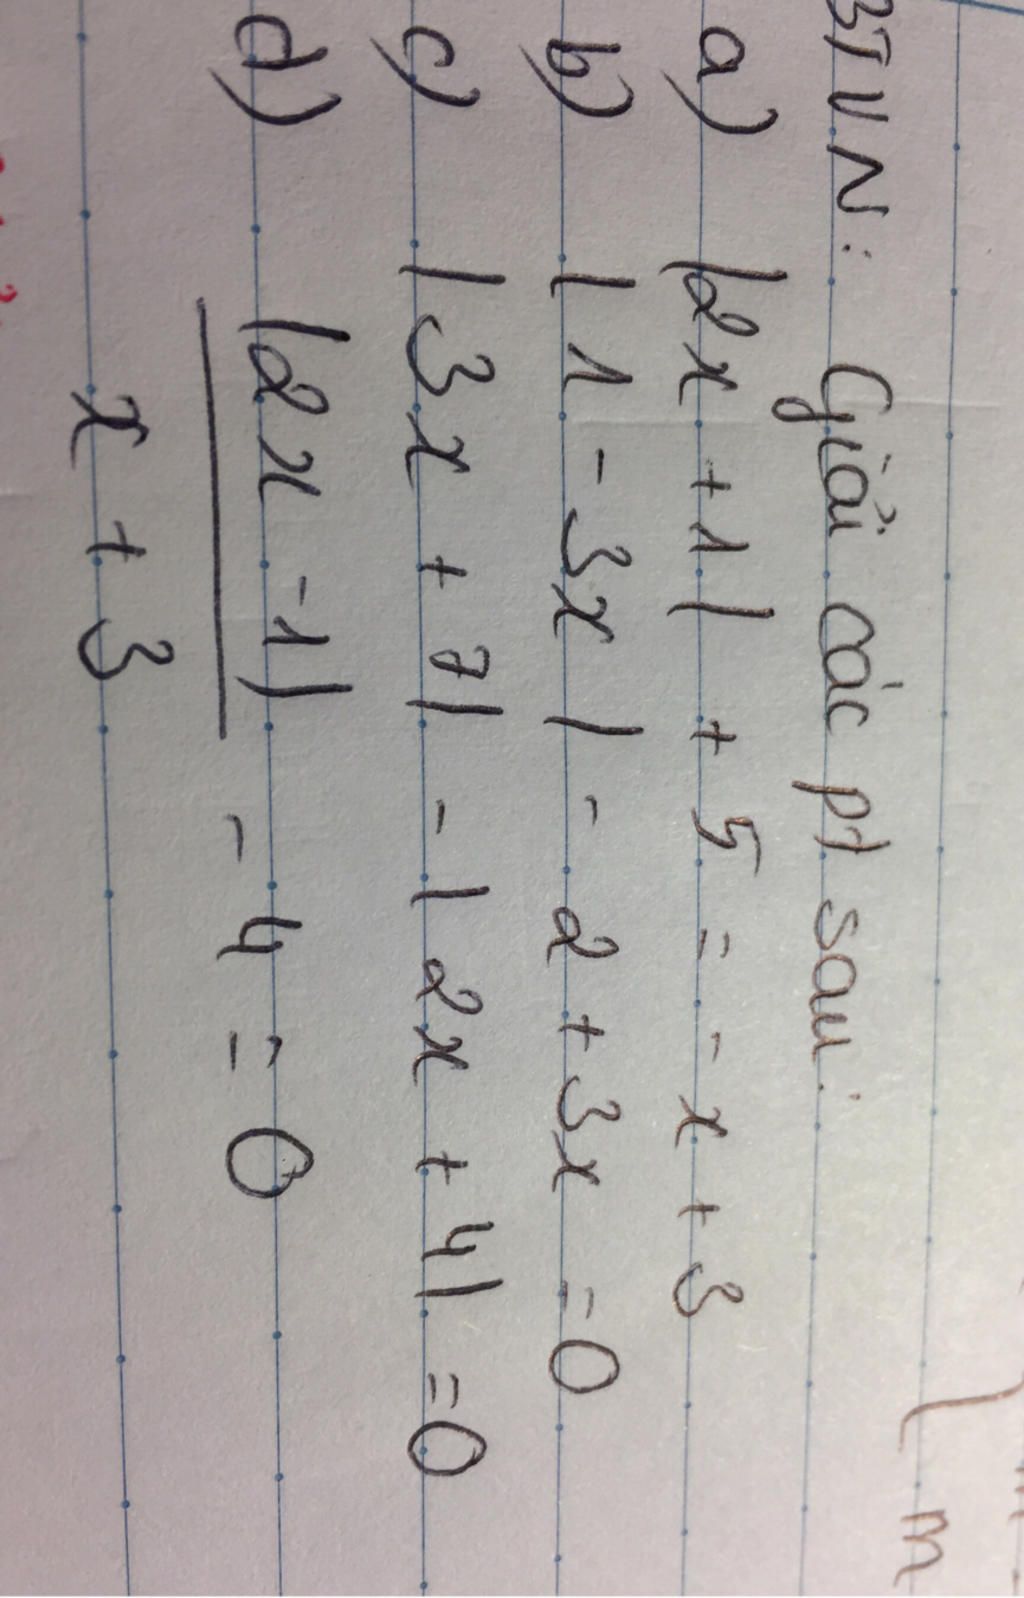 BTVN: Giải các pt sau:
a) |2x + 1| + 5 = - x + 3
b) |1 - 3x| - 2 + 3x = 0
c) |3x + 7| - |2x + 4| = 0
d) |2x - 1| - 4 = 0
x + 3
m